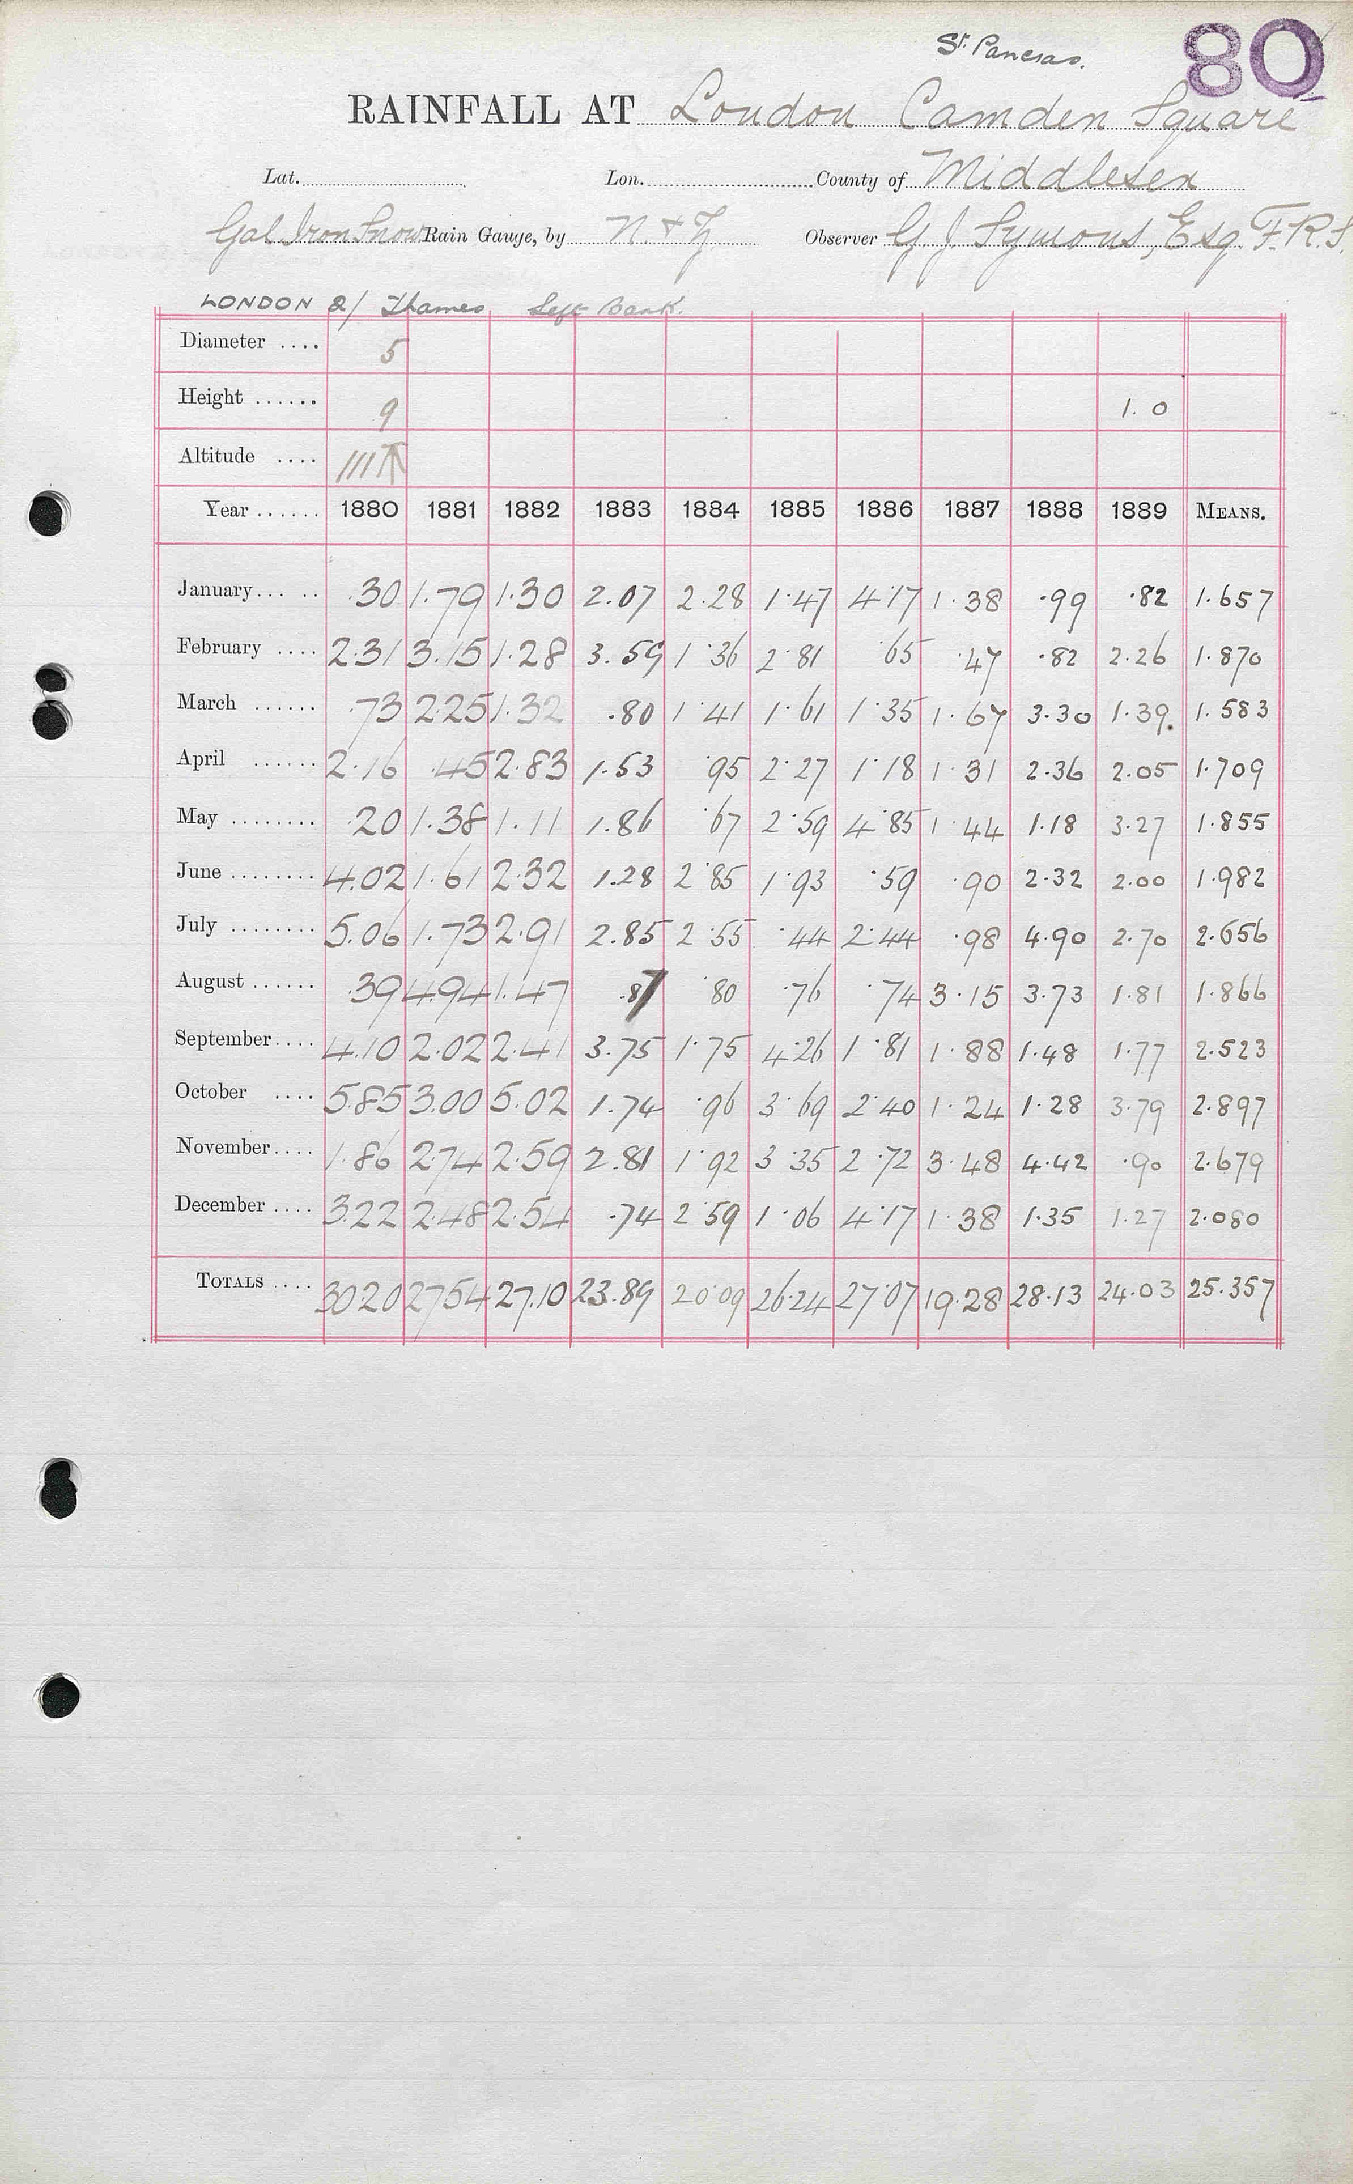 St. Pancras. 80
RAINFALL AT London Camden Square
Lat. Lon. County of Middlesex
Gal Iron Snow Rain Gauge, by N. & Z Observer G. J. Symons, Esq. F.R.S.
LONDON 2/ Thames Left Bank.
Diameter .... 5
Height ...... 9 1.0
Altitude .... 111 T
Year ...... 1880 1881 1882 1883 1884 1885 1886 1887 1888 1889 MEANS.
January... .. .30 1.79 1.30 2.07 2.28 1.47 4.17 1.38 .99 .82 1.657
February .... 2.31 3.15 1.28 3.59 1.36 2.81 .65 .47 .82 2.26 1.870
March ...... .73 2.25 1.32 .80 1.41 1.61 1.35 1.67 3.30 1.39. 1.583
April ...... 2.16 .45 2.83 1.53 .95 2.27 1.18 1.31 2.36 2.05 1.709
May ........ .20 1.38 1.11 1.86 .67 2.59 4.85 1.44 1.18 3.27 1.855
June ........ 4.02 1.61 2.32 1.28 2.85 1.93 .59 .90 2.32 2.00 1.982
July ........ 5.06 1.73 2.91 2.85 2.55 .44 2.44 .98 4.90 2.70 2.656
August ...... .39 4.94 1.47 .87 .80 .76 .74 3.15 3.73 1.81 1.866
September.... 4.10 2.02 2.41 3.75 1.75 4.26 1.81 1.88 1.48 1.77 2.523
October .... 5.85 3.00 5.02 1.74 .96 3.69 2.40 1.24 1.28 3.79 2.897
November.... 1.86 2.74 2.59 2.81 1.92 3.35 2.72 3.48 4.42 .90 2.679
December .... 3.22 2.48 2.54 .74 2.59 1.06 4.17 1.38 1.35 1.27 2.080
TOTALS .... 30.20 27.54 27.10 23.89 20.09 26.24 27.07 19.28 28.13 24.03 25.357